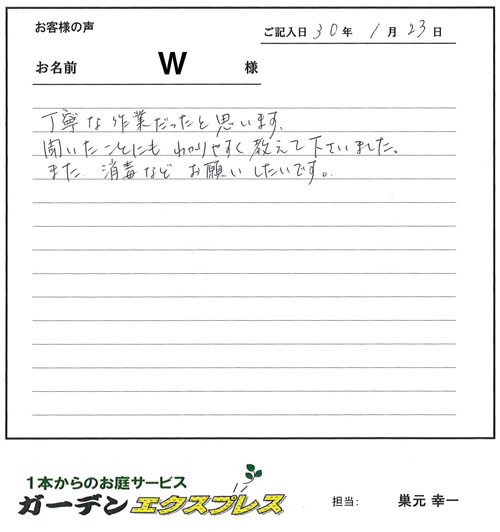 お客様の声
ご記入日 30年 1月 23日
お名前 W 様
丁寧な作業だったと思います。
聞いたことにも わかりやすく教えて下さいました。
また 消毒など お願いしたいです。
1本からのお庭サービス
ガーデンエクスプレス
担当: 巣元 幸一